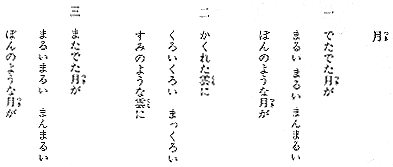 月つき
一 でたでた月つきが
まるい まるい まんまるい
ぼんのような月つきが
二 かくれた雲くもに
くろいくろい まっくろい
すみのような雲くもに
三 またでた月つきが
まるいまるい まんまるい
ぼんのような月つきが